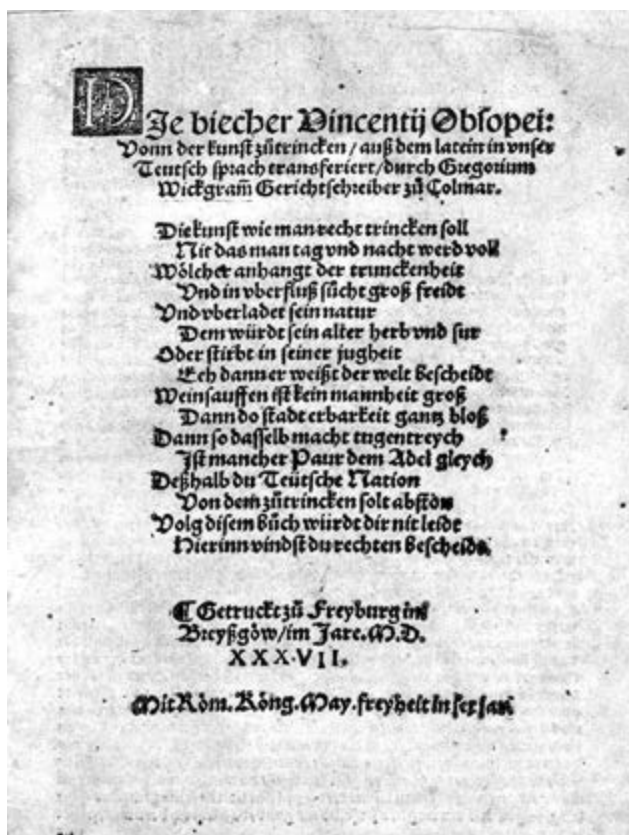 DJe biecher Vincentij Obsopei:
Vonn der kunst zůtrincken / auß dem latein in vnser
Teutsch sprach transferiert / durch Gregorium
Wickgram̃ Gerichtschreiber zů Colmar.
Die kunst wie man recht trincken soll
Nit das man tag vnd nacht werd voll
Wölcher anhangt der trunckenheit
Vnd in vberfluß sůcht groß freidt
Vnd vberladet sein natur
Dem würdt sein alter herb vnd sur
Oder stirbt in seiner jugheit
Eeh dann er weißt der welt bescheidt
Weinsauffen ist kein mannheit groß
Dann do stadt erbarkeit gantz bloß
Dann so dasselb macht tugentreych
Jst mancher Paur dem Adel gleych
Deßhalb du Teütsche Nation
Von dem zůtrincken solt abstôn
Volg disem bůch würdt dir nit leidt
Hierinn vindst du rechten bescheidt.
¶ Getruckt zů Freyburg im
Breyßgôw / im Jare. M. D.
XXX.VII.
Mit Röm. Köng. May. freyheit in sex jarn